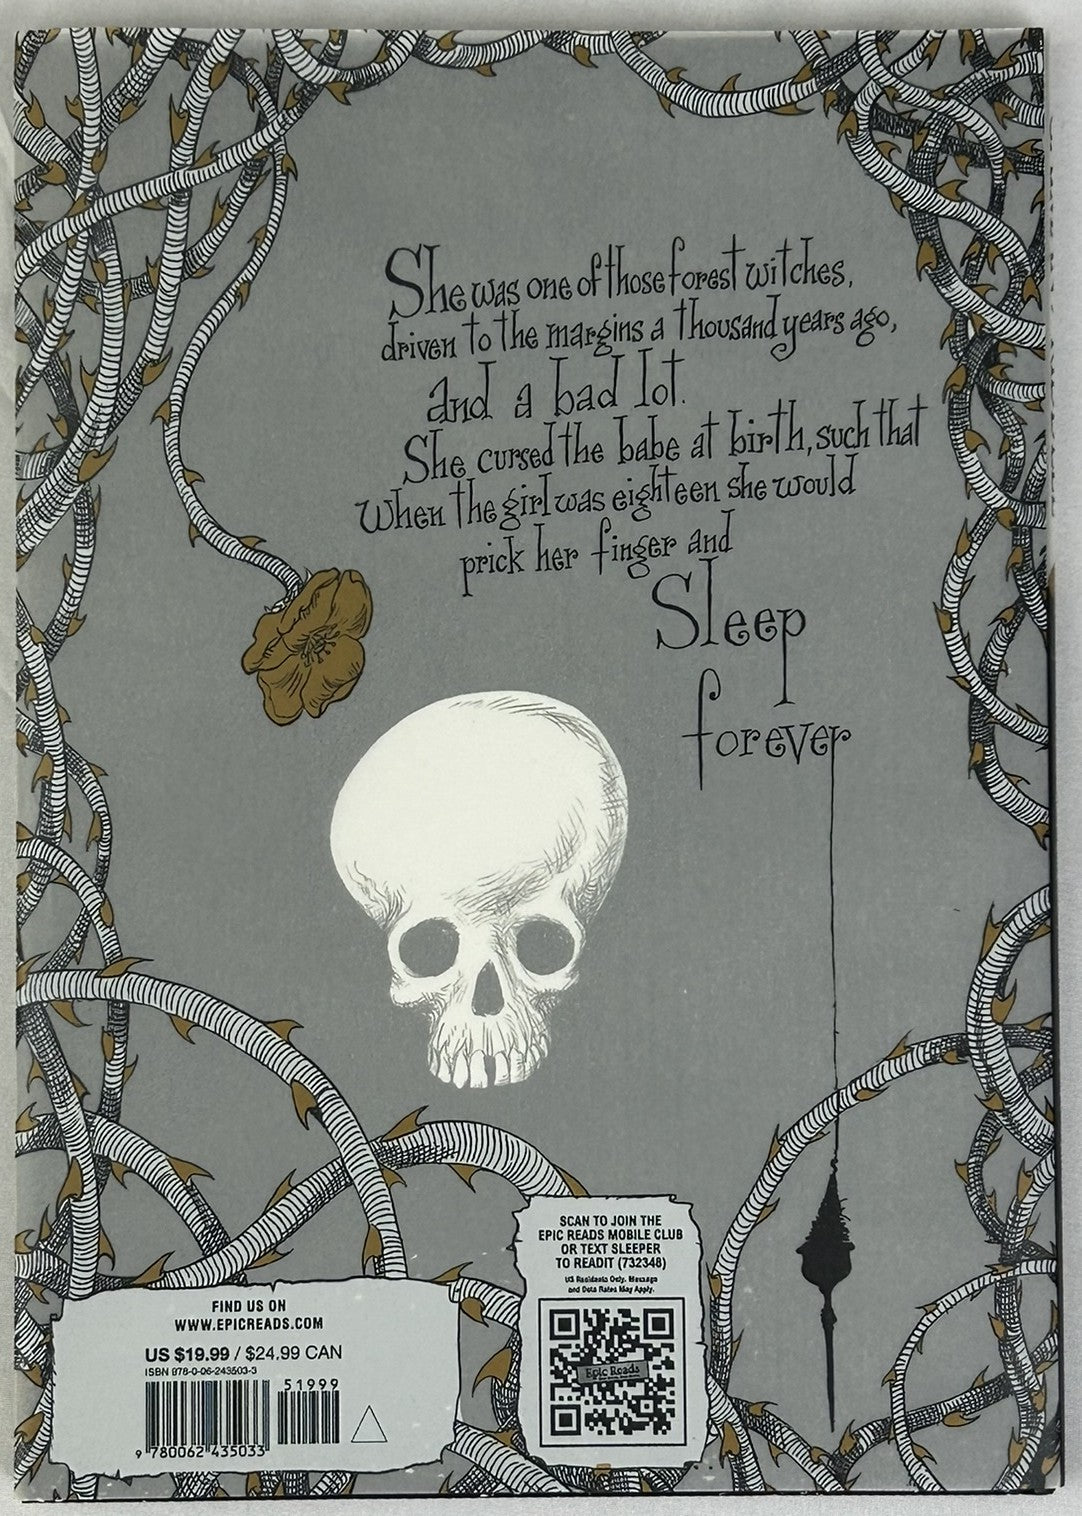 She was one of those forest witches,
driven to the margins a thousand years ago,
and a bad lot.
She cursed the babe at birth, such that
when the girl was eighteen she would
prick her finger and
Sleep
forever
SCAN TO JOIN THE
EPIC READS MOBILE CLUB
OR TEXT SLEEPER
TO READIT (732348)
US Residents Only. Message
and Data Rates May Apply.
Epic Reads
FIND US ON
WWW.EPICREADS.COM
US $19.99 / $24.99 CAN
ISBN 978-0-06-243503-3
51999
9 780062 435033